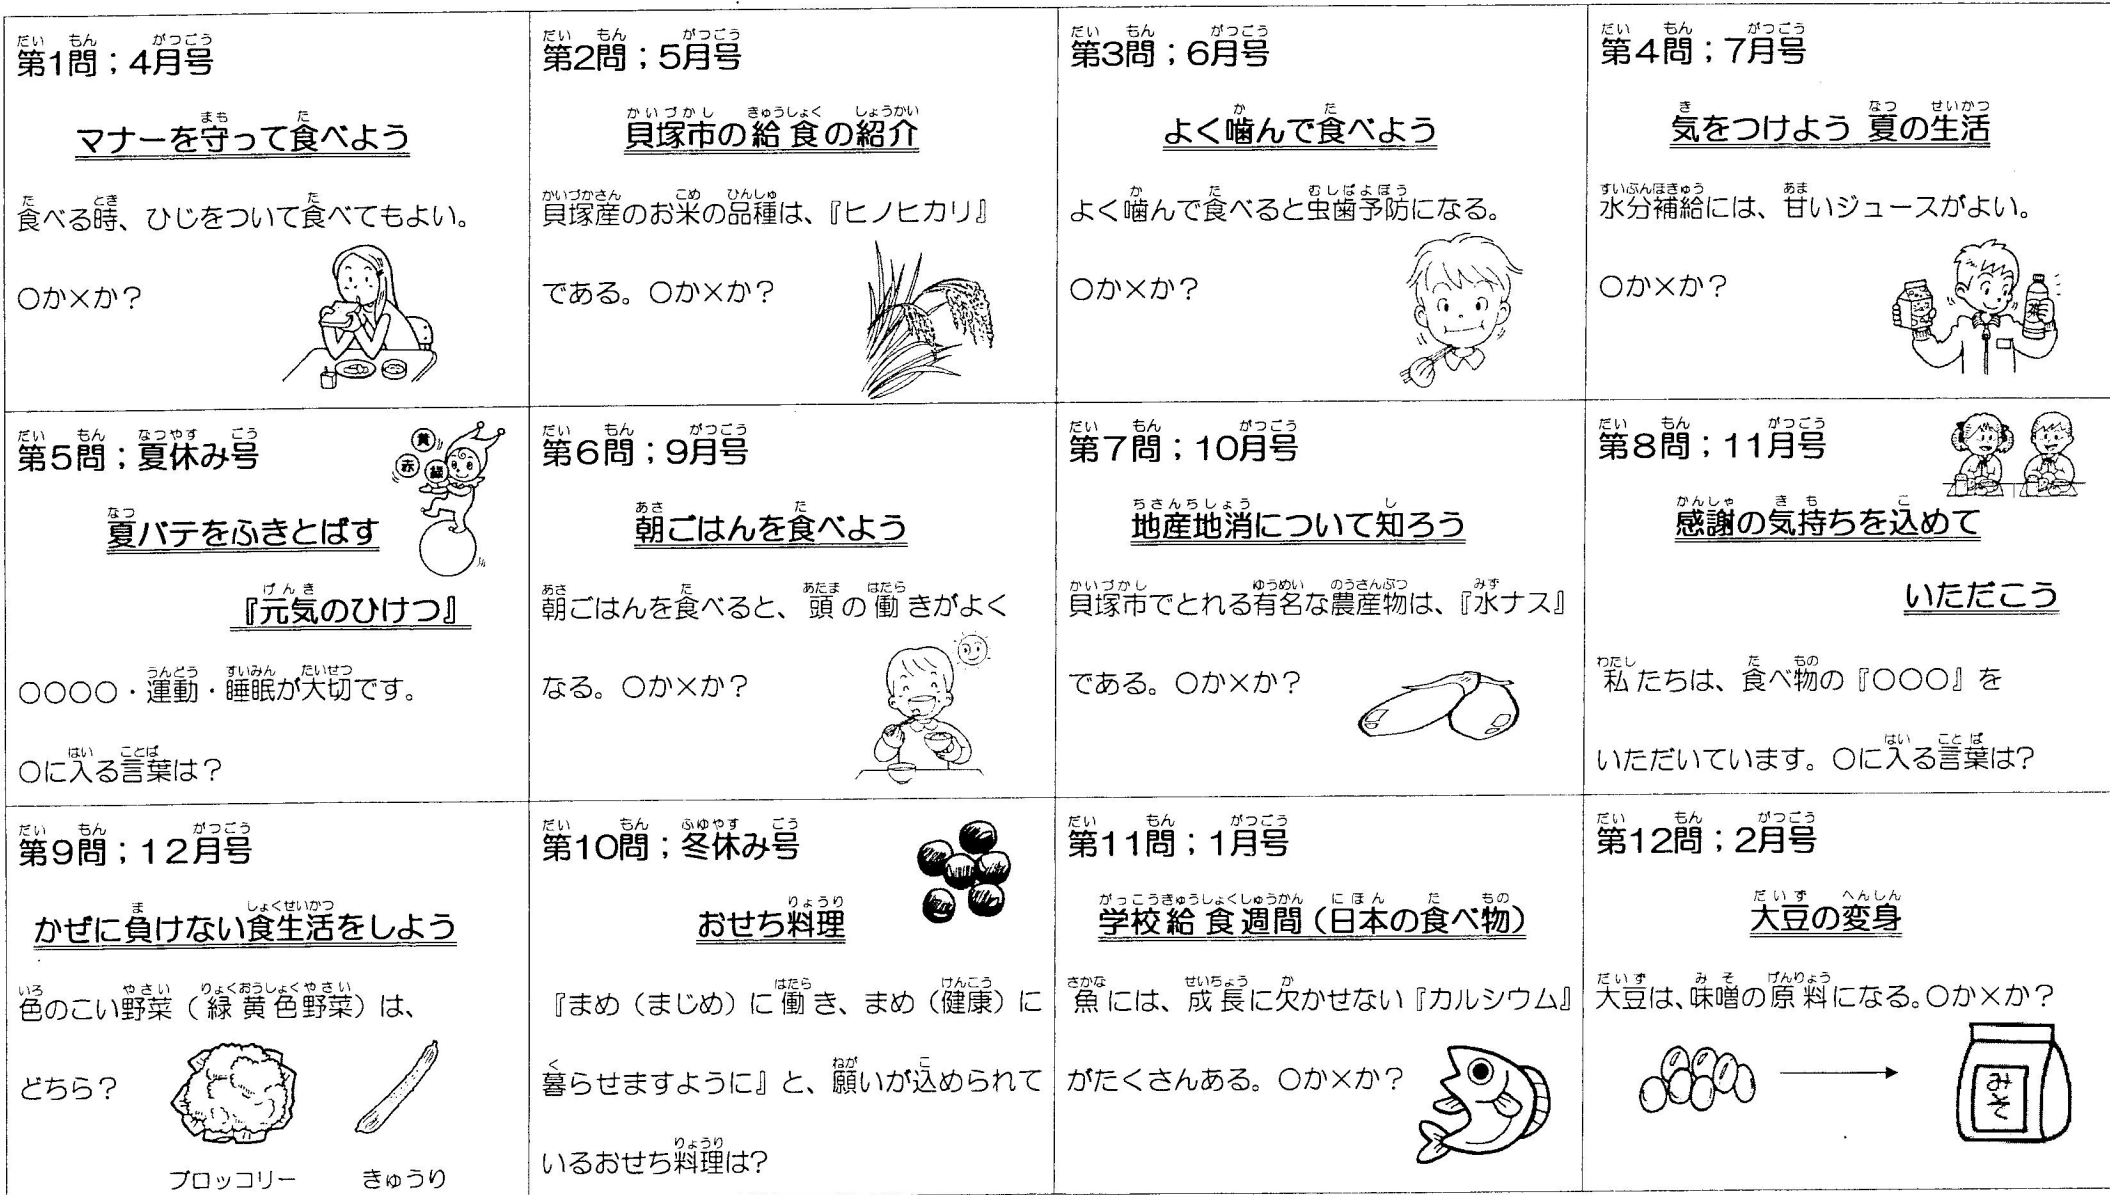 第1問；4月号
マナーを守って食べよう
食べる時、ひじをついて食べてもよい。
○か×か？
第2問；5月号
貝塚市の給食の紹介
貝塚産のお米の品種は、『ヒノヒカリ』
である。○か×か？
第3問；6月号
よく噛んで食べよう
よく噛んで食べると虫歯予防になる。
○か×か？
第4問；7月号
気をつけよう 夏の生活
水分補給には、甘いジュースがよい。
○か×か？
茶
第5問；夏休み号
黄
赤
緑
夏バテをふきとばす
『元気のひけつ』
○○○○・運動・睡眠が大切です。
○に入る言葉は？
第6問；9月号
朝ごはんを食べよう
朝ごはんを食べると、頭の働きがよく
なる。○か×か？
第7問；10月号
地産地消について知ろう
貝塚市でとれる有名な農産物は、『水ナス』
である。○か×か？
第8問；11月号
感謝の気持ちを込めて
いただこう
私たちは、食べ物の『○○○』を
いただいています。○に入る言葉は？
第9問；12月号
かぜに負けない食生活をしよう
色のこい野菜（緑黄色野菜）は、
どちら？
ブロッコリー　きゅうり
第10問；冬休み号
おせち料理
『まめ（まじめ）に働き、まめ（健康）に
暮らせますように』と、願いが込められて
いるおせち料理は？
第11問；1月号
学校給食週間（日本の食べ物）
魚には、成長に欠かせない『カルシウム』
がたくさんある。○か×か？
第12問；2月号
大豆の変身
大豆は、味噌の原料になる。○か×か？
みそ